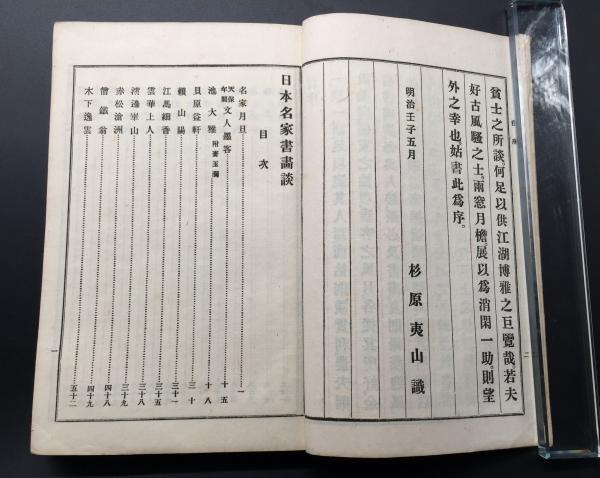 貧士之所談。何足以供江湖博雅之巨覽哉若夫
好古風騷之士。雨窓月檐。展以爲消閑一助。則望
外之幸也姑書此爲序。
明治壬子五月
杉原夷山識
自序
二
日本名家書畫談
目次
名家月旦 一
天保年間文人墨客 十五
池大雅 附妻玉瀾 十八
貝原益軒 三十
賴山陽 三十一
江馬細香 三十五
雲華上人 三十八
渡邊崋山 三十九
赤松滄洲 四十八
僧鐵翁 四十九
木下逸雲 五十二
一